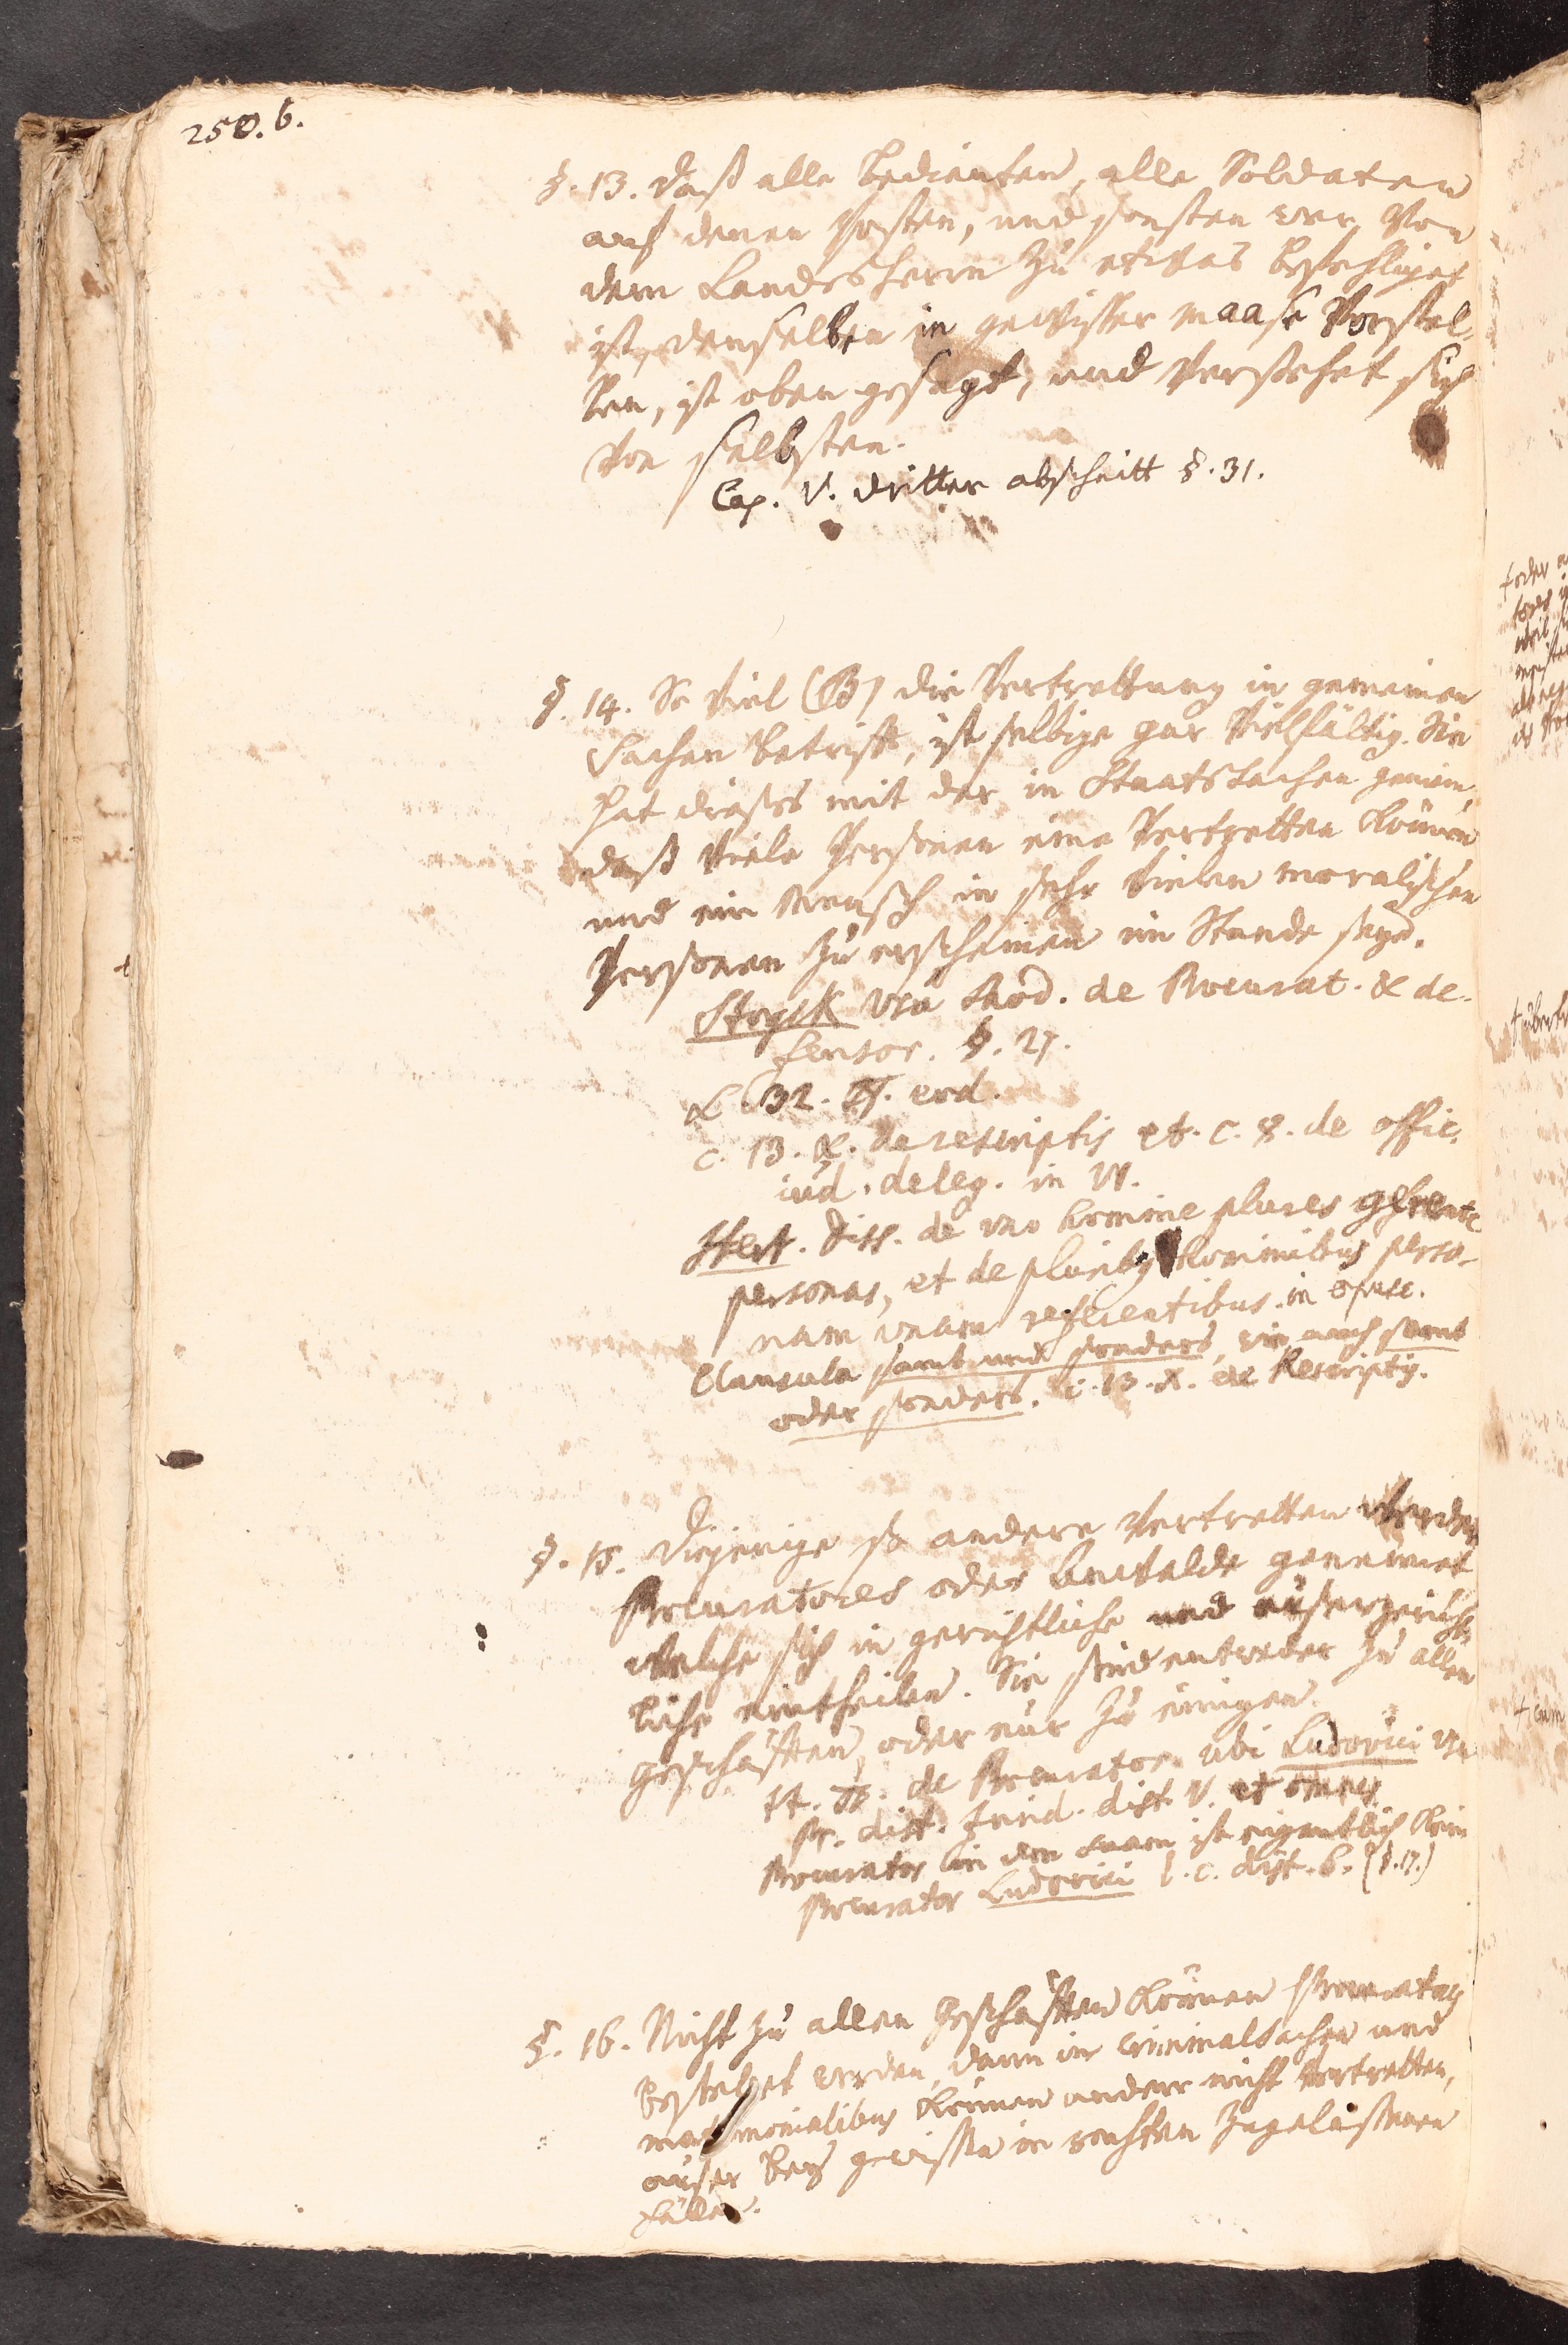 250. b.
§. 13. Daß alle Bedienten, alle Soldaten
auf denen Posten, und sonsten wer von
dem Landesherrn zu etwas befehliget
ist, denselben in gewisser maase vorstel-
len, ist oben gesagt, und verstehet sich
von selbsten.
Cap. V. dritter abschnitt §. 31.
§. 14. So viel (B) die Vertrettung in gemeinen
Sachen betrifft, ist selbige gar vielfältig. Sie
hat dieses mit der in Staatssachen gemein,
daß viele Personen eine vertretten können
und ein Mensch in sehr vielen moralischen
Personen zu erscheinen im Stande seye.
Stryck Vsu Mod. de Procurat. & de-
fensor. §. 27.
L. 32. ff. eod.
c. 13. X. de rescriptis et. c. 8. de offic.
iud. deleg. in VI.
Hert. Diss. de vno homine plures gerente
personas, et de pluribus hominibus perso-
nam vnam referentibus. in opusc.
Clausula samt und sonders, wie auch samt
oder sonders. c. 13. X. de Rescriptis.
§. 15. Diejenige so andere vertretten werden
Procuratores oder Anwalde genennet
welche sich in gerichtliche und ausergericht-
liche eintheilen. Sie sind entweder zu allen
geschäfften, oder nur zu einigen.
tt. ff. de Procurator. ubi Ludovici
dist. V. et omnes.
Procurator in rem suam ist eigentlich kein
Procurator Ludovici l. c. dist. 6. (§. 17.)
§. 16. Nicht zu allen Geschäfften können Procuratores
bestellet werden, dann in criminalsachen und
matrimonialibus können andere nicht vertretten,
auser bey gewissen in rechten zugelassenen
Fällen.